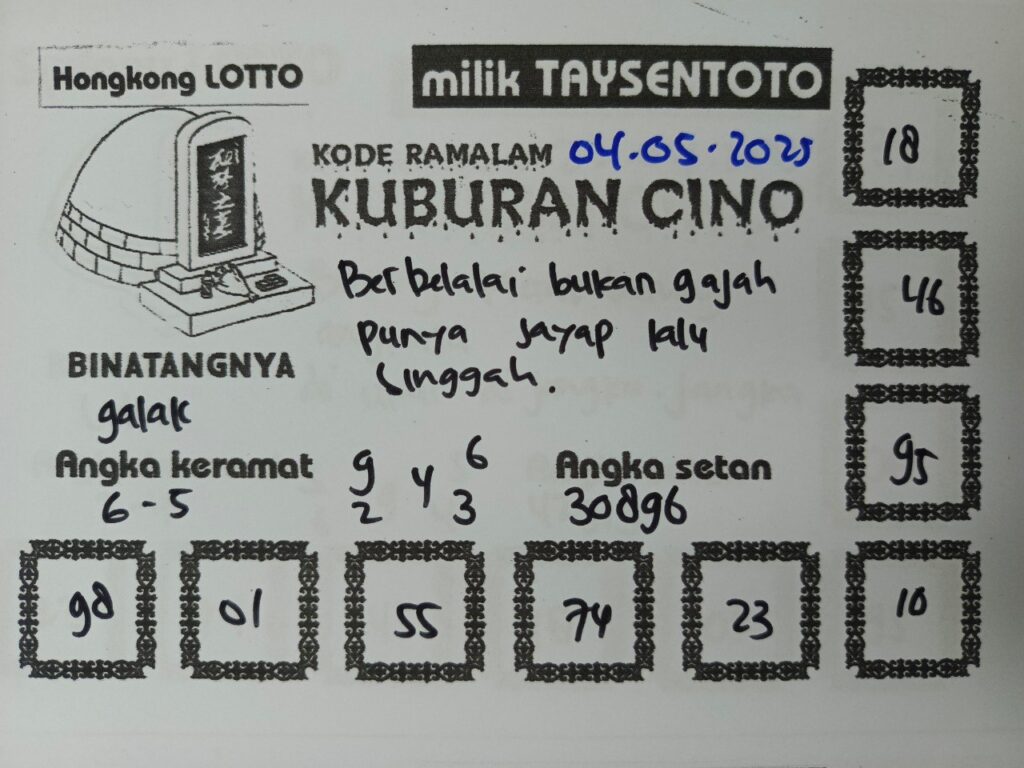 Hongkong LOTTO
milik TAYSENTOTO
KODE RAMALAM 04.05.2025
KUBURAN CINO
Berbelalai bukan gajah
punya sayap lalu
singgah.
BINATANGNYA
galak
Angka keramat
6-5
9 4 6
2 3
Angka setan
30896
18
46
95
98
01
55
74
23
10